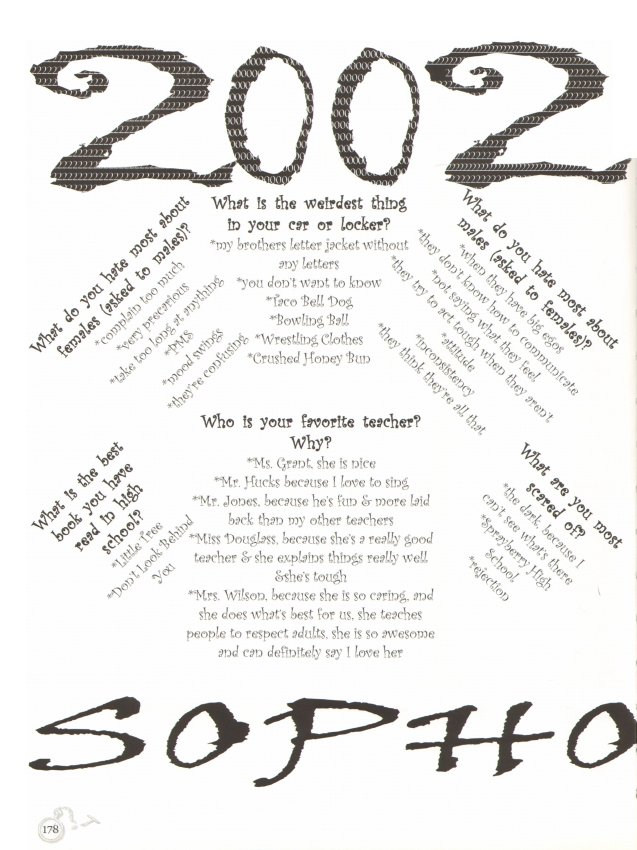 2002
What do you hate most about
females (asked to males)?
*complain too much
*very precarious
*take too long at anything
*PMS
*mood swings
*they're confusing
What is the weirdest thing
in your car or locker?
*my brothers letter jacket without
any letters
*you don't want to know
*Taco Bell Dog
*Bowling Ball
*Wrestling Clothes
*Crushed Honey Bun
What do you hate most about
males (asked to females)?
*when they have big egos
*they don't know how to communicate
*not saying what they feel
*they try to act tough when they aren't
*attitude
*inconsistency
*they think they're all that
Who is your favorite teacher?
Why?
*Ms. Grant, she is nice
*Mr. Hucks because I love to sing
*Mr. Jones, because he's fun & more laid
back than my other teachers
*Miss Douglass, because she's a really good
teacher & she explains things really well
&she's tough
*Mrs. Wilson, because she is so caring, and
she does what's best for us, she teaches
people to respect adults, she is so awesome
and can definitely say I love her
What is the best
book you have
read in high
school?
*Little Tree
*Don't Look Behind
You
What are you most
scared of?
*the dark, because I
can't see what's there
*Sprayberry High
School
*rejection
SOPHO
178